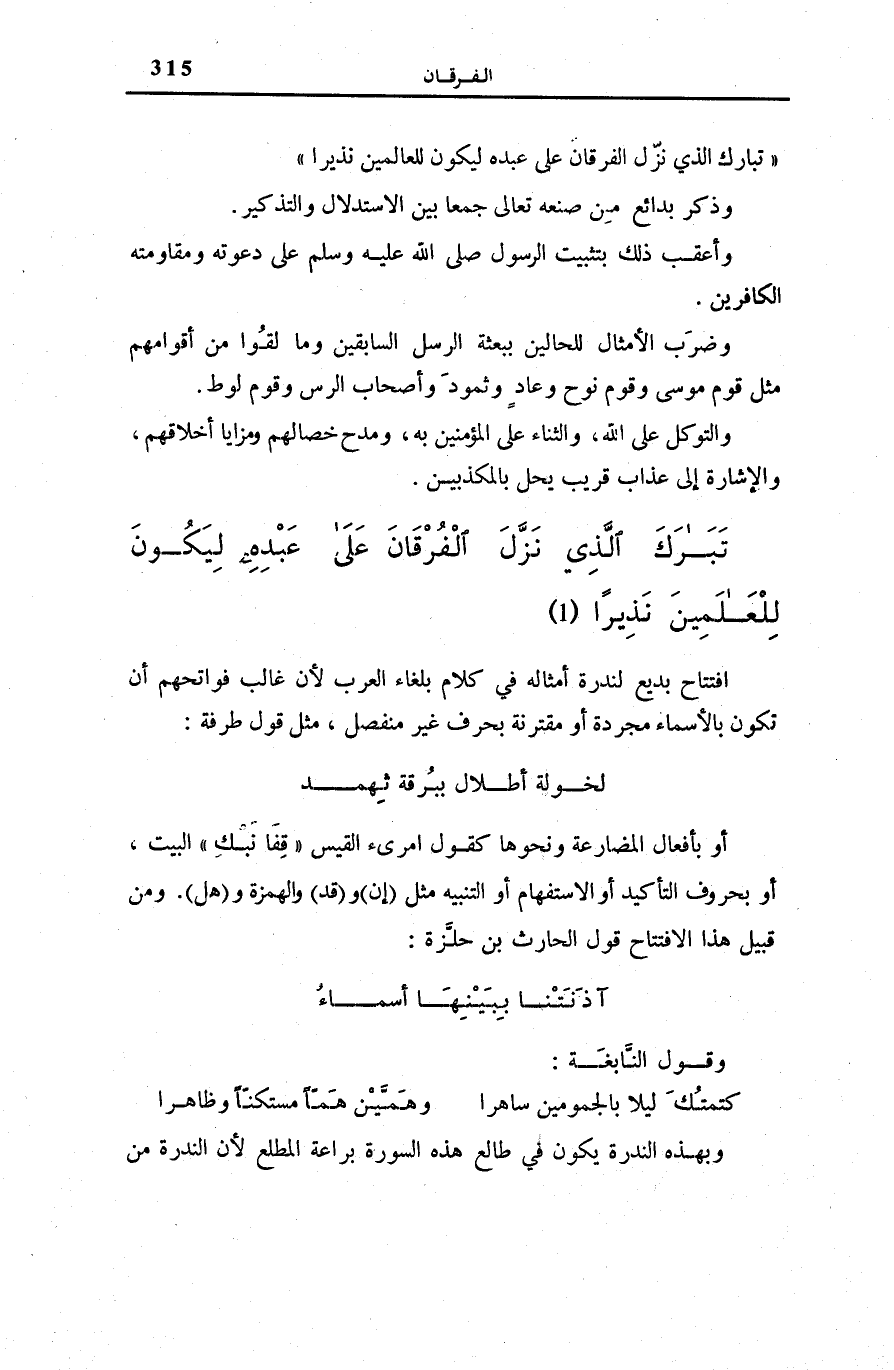 315
الفرقان
« تبارك الذي نزّل الفرقان على عبده ليكون للعالمين نذيرا »
وذكر بدائع من صنعه تعالى جمعا بين الاستدلال والتذكير .
وأعقب ذلك بتثبيت الرسول صلى الله عليه وسلم على دعوته ومقاومته
الكافرين .
وضرَب الأمثال للحالين ببعثة الرسل السابقين وما لقُوا من أقوامهم
مثل قوم موسى وقوم نوح وعادٍ وثمودَ وأصحاب الرس وقوم لوط .
والتوكل على الله، والثناء على المؤمنين به، ومدح خصالهم ومزايا أخلاقهم،
والإشارة إلى عذاب قريب يحل بالمكذبين .
تَبَـٰرَكَ ٱلَّذِي نَزَّلَ ٱلْفُرْقَانَ عَلَىٰ عَبْدِهِۦ لِيَكُونَ
لِلْعَـٰلَمِينَ نَذِيرًا (1)
افتتاح بديع لندرة أمثاله في كلام بلغاء العرب لأن غالب فواتحهم أن
تكون بالأسماء مجردة أو مقترنة بحرف غير منفصل ، مثل قول طرفة :
لخولة أطلال ببُرقة ثهمد
أو بأفعال المضارعة ونحوها كقول امرىء القيس « قِفَا نَبْكِ » البيت ،
أو بحروف التأكيد أو الاستفهام أو التنبيه مثل (إن) و(قد) والهمزة و(هل). ومن
قبيل هذا الافتتاح قول الحارث بن حلَّزة :
آذَنَتْنا بِبَيْنِهَا أسماءُ
وقول النَّابغَة :
كتمتُكَ ليلا بالجمومين ساهرا وهَمَّيْن هَمّاً مستكنّاً وظاهرا
وبهذه الندرة يكون في طالع هذه السورة براعة المطلع لأن الندرة من